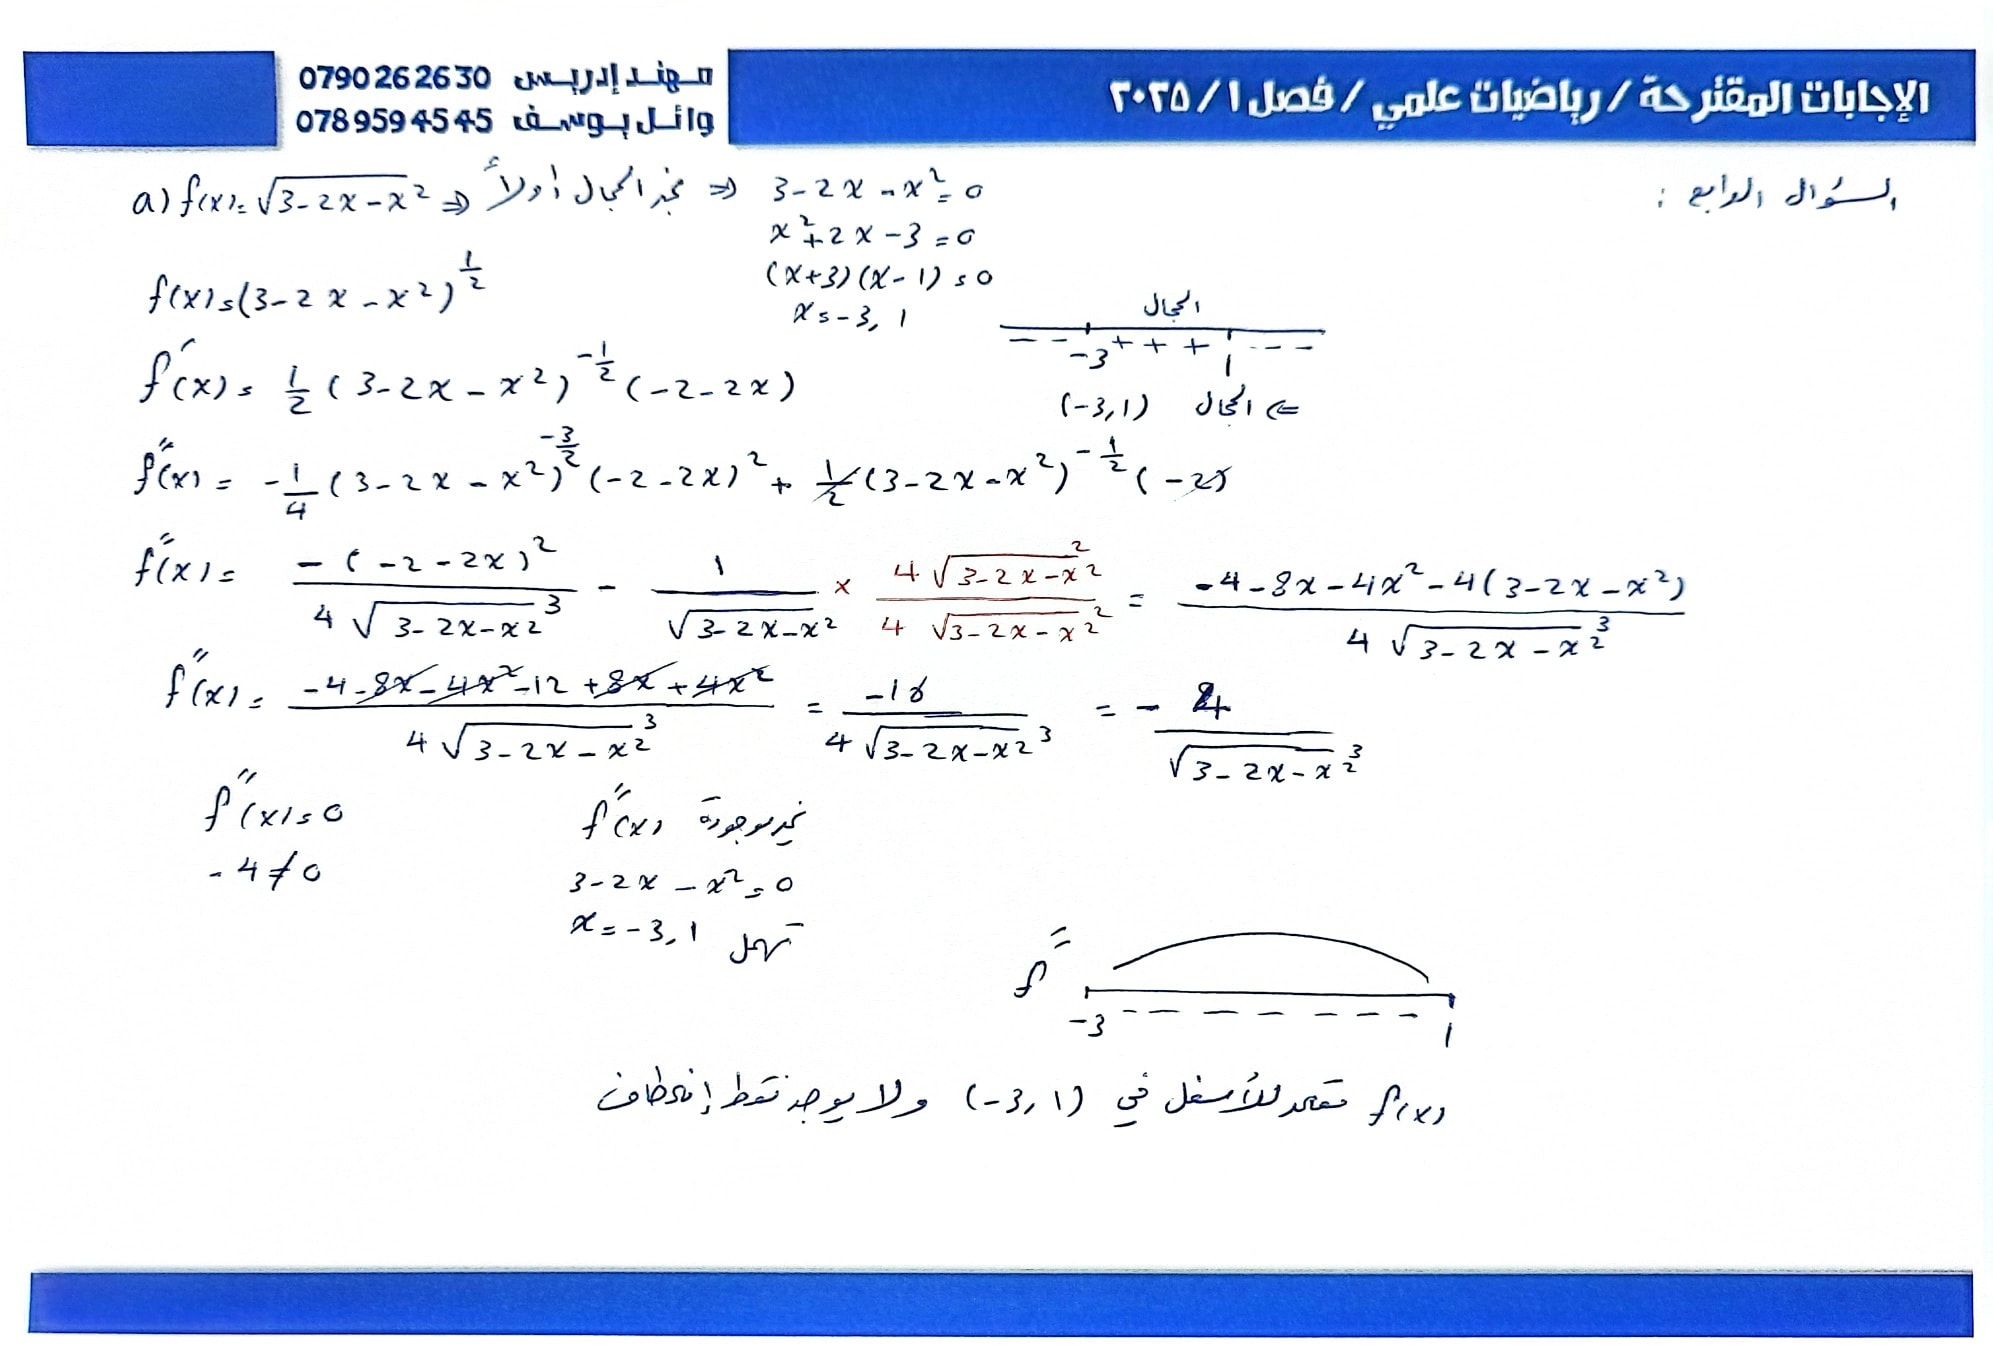 الإجابات المقترحة / رياضيات علمي / فصل ١ / ٢٠٢٥
مهند إدريس 0790262630
وائل يوسف 0789594545
السؤال الرابع :
a) f(x) = √(3-2x-x²) ⇒ نجد المجال أولاً ⇒ 3-2x-x² = 0
x²+2x-3 = 0
(x+3)(x-1) = 0
x = -3, 1
المجال
- - -3 + + + 1 - - -
⇐ المجال (-3,1)
f(x) = (3-2x-x²)^(1/2)
f'(x) = 1/2 (3-2x-x²)^(-1/2) (-2-2x)
f''(x) = -1/4 (3-2x-x²)^(-3/2) (-2-2x)² + 1/2 (3-2x-x²)^(-1/2) (-2)
f''(x) = -(-2-2x)² / 4√(3-2x-x²)³ - 1 / √(3-2x-x²) × 4√(3-2x-x²)² / 4√(3-2x-x²)² = -4-8x-4x²-4(3-2x-x²) / 4√(3-2x-x²)³
f''(x) = -4-8x-4x²-12+8x+4x² / 4√(3-2x-x²)³ = -16 / 4√(3-2x-x²)³ = - 4 / √(3-2x-x²)³
f''(x) = 0
-4 ≠ 0
f''(x) غير موجودة
3-2x-x² = 0
x = -3, 1 تهمل
f''
-3 - - - - - - 1
f(x) مقعر للأسفل في (-3,1) ولا يوجد نقط إنعطاف